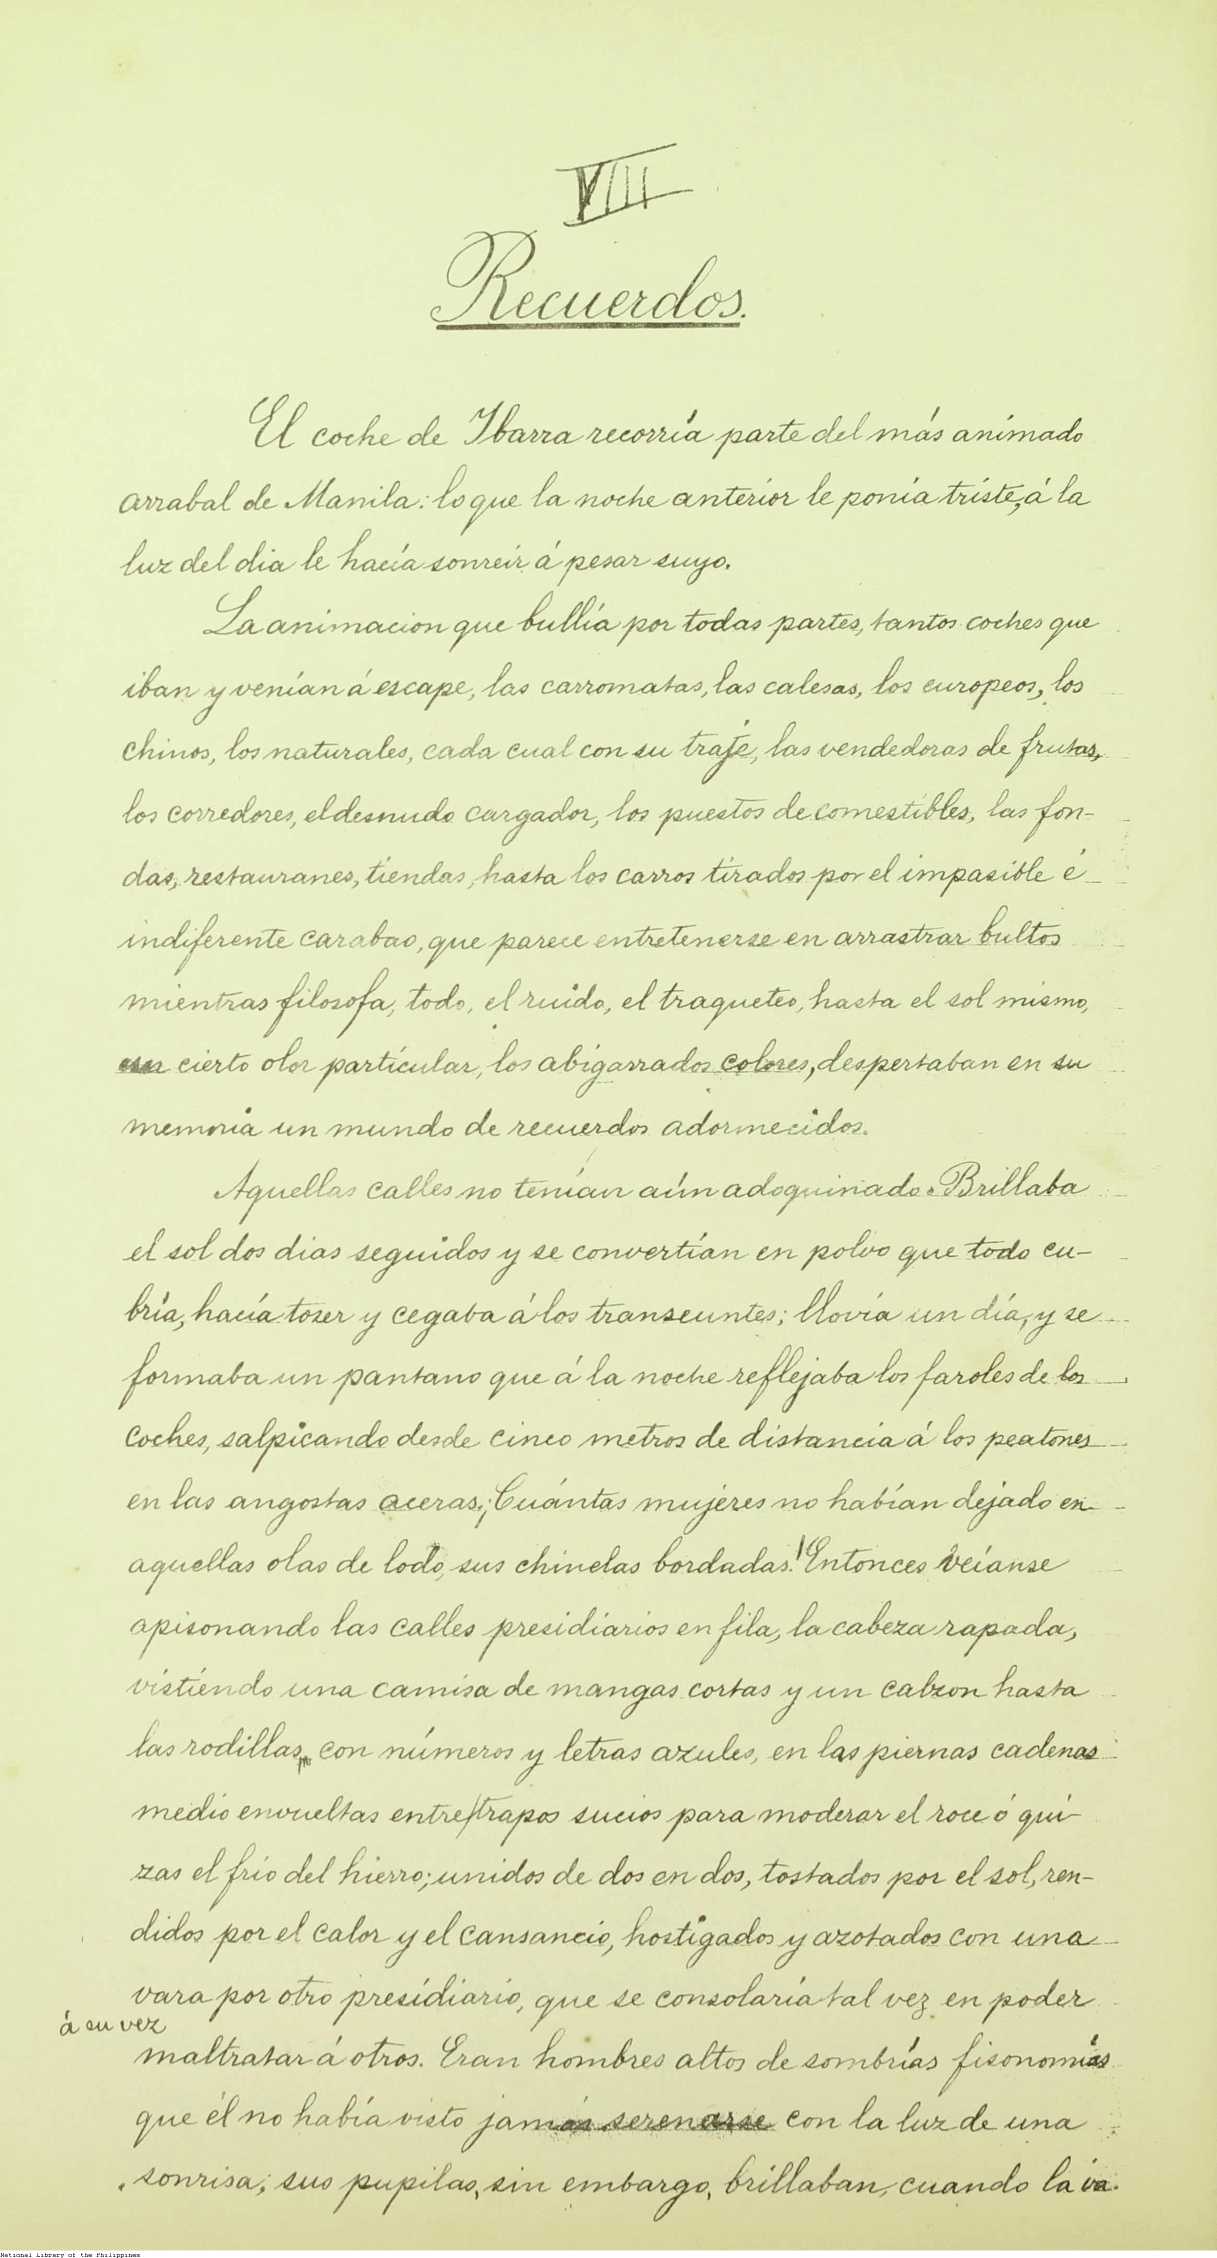 VIII
Recuerdos.
El coche de Ibarra recorría parte del más animado
arrabal de Manila: lo que la noche anterior le ponía triste, á la
luz del dia le hacía sonreir á pesar suyo.
La animacion que bullía por todas partes, tantos coches que
iban y venían á escape, las carromatas, las calesas, los europeos, los
chinos, los naturales, cada cual con su traje, las vendedoras de frutas,
los corredores, el desnudo cargador, los puestos de comestibles, las fon-
das, restauranes, tiendas, hasta los carros tirados por el impasible é
indiferente carabao, que parece entretenerse en arrastrar bultos
mientras filosofa, todo, el ruido, el traqueteo, hasta el sol mismo,
cierto olor particular, los abigarrados colores, despertaban en su
memoria un mundo de recuerdos adormecidos.
Aquellas calles no tenían aún adoquinado. Brillaba
el sol dos dias seguidos y se convertían en polvo que todo cu-
bría, hacía toser y cegaba á los transeuntes; llovía un día, y se
formaba un pantano que á la noche reflejaba los faroles de los
coches, salpicando desde cinco metros de distancia á los peatones
en las angostas aceras. ¡Cuántas mujeres no habían dejado en
aquellas olas de lodo sus chinelas bordadas! Entonces veíanse
apisonando las calles presidiarios en fila, la cabeza rapada,
vistiendo una camisa de mangas cortas y un calzon hasta
las rodillas, con números y letras azules, en las piernas cadenas
medio envueltas entre trapos sucios para moderar el roce ó qui-
zas el frio del hierro; unidos de dos en dos, tostados por el sol, ren-
didos por el calor y el cansancio, hostigados y azotados con una
vara por otro presidiario, que se consolaría tal vez en poder
á su vez
maltratar á otros. Eran hombres altos de sombrías fisonomías
que él no había visto jamás serenarse con la luz de una
sonrisa; sus pupilas, sin embargo, brillaban, cuando la va-
National Library of the Philippines